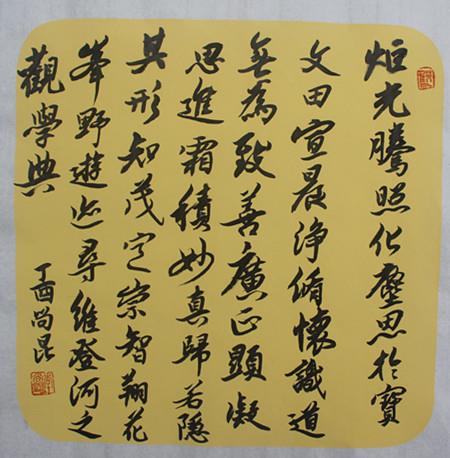 炬光騰照化思於寶
文田宣晨淨脩懷識道
無為致善廣正顯凝
思進霜積妙真歸若隱
其形知茂定崇智翔花
峯野遊迹尋維登河之
觀學典
丁酉尚昆